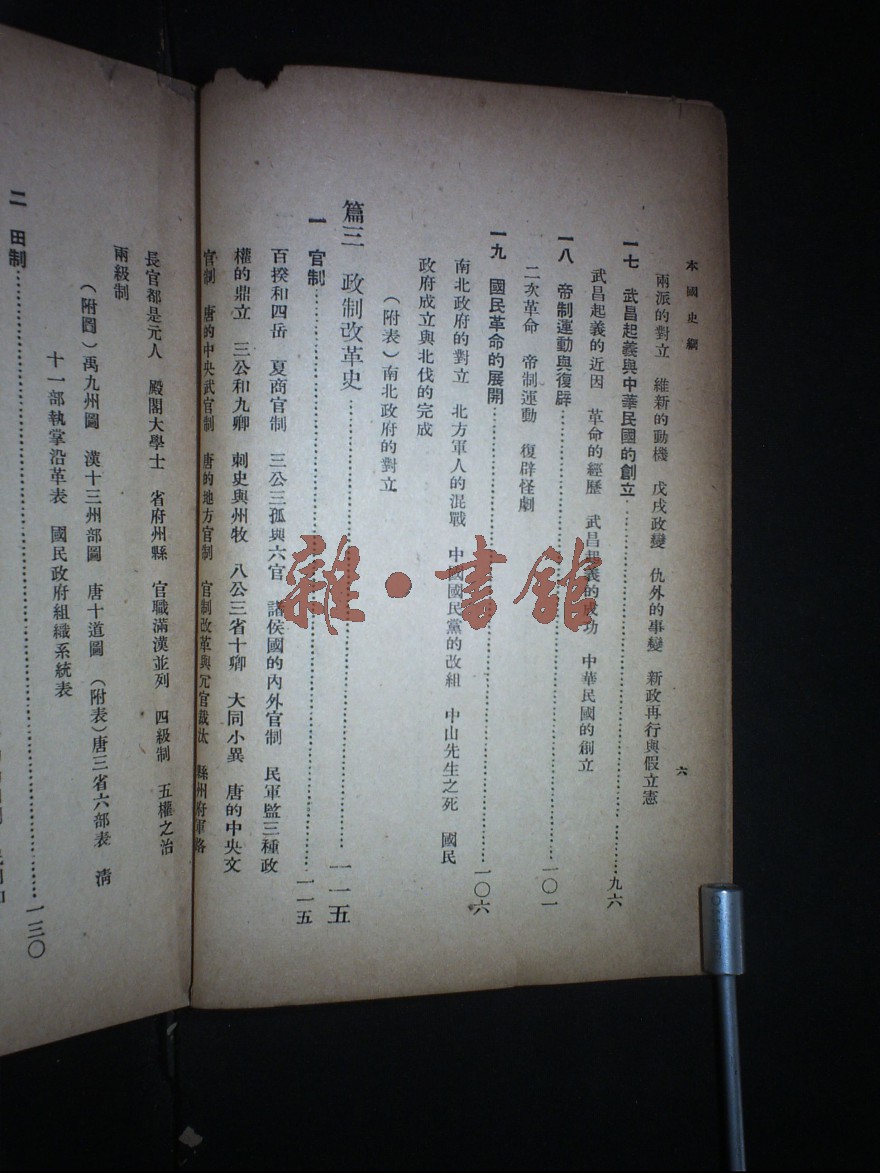 本國史綱
六
兩派的對立 維新的動機 戊戌政變 仇外的事變 新政再行與假立憲
一七 武昌起義與中華民國的創立……九六
武昌起義的近因 革命的經歷 武昌起義的成功 中華民國的創立
一八 帝制運動與復辟……一〇一
二次革命 帝制運動 復辟怪劇
一九 國民革命的展開……一〇六
南北政府的對立 北方軍人的混戰 中國國民黨的改組 中山先生之死 國民
政府成立與北伐的完成
(附表)南北政府的對立
篇三 政制改革史……一一五
一 官制……一一五
百揆和四岳 夏商官制 三公三孤與六官 諸侯國的內外官制 民軍監三種政
權的鼎立 三公和九卿 刺史與州牧 八公三省十卿 大同小異 唐的中央文
官制 唐的中央武官制 唐的地方官制 官制改革與冗官裁汰 縣州府軍路
長官都是元人 殿閣大學士 省府州縣 官職滿漢並列 四級制 五權之治
兩級制
(附圖)禹九州圖 漢十三州部圖 唐十道圖 (附表)唐三省六部表 清
十一部執掌沿革表 國民政府組織系統表
二 田制……一三〇
雜·書館